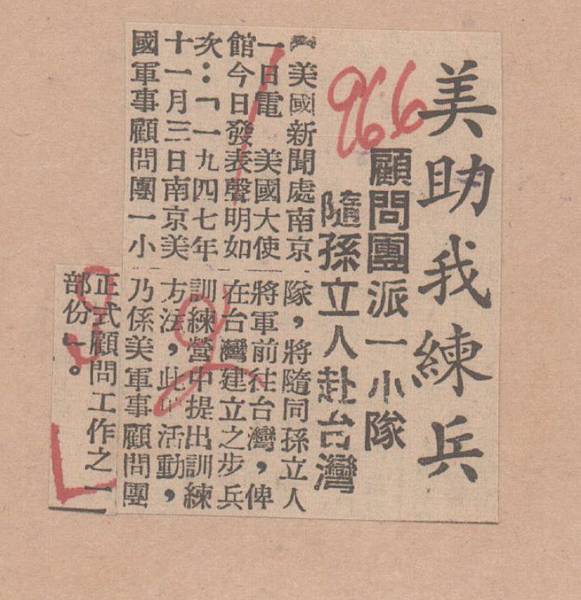 美助我練兵
966
顧問團派一小隊
隨孫立人赴台灣
【美國新聞處南京
一日電　美國大使
館今日發表聲明如
次：「一九四七年
十一月三日南京美
國軍事顧問團一小
隊，將隨同孫立人
將軍前往台灣，俾
在台灣建立之步兵
訓練營中提出訓練
方法，此一活動，
乃係美軍事顧問團
正式顧問工作之一
部份」。